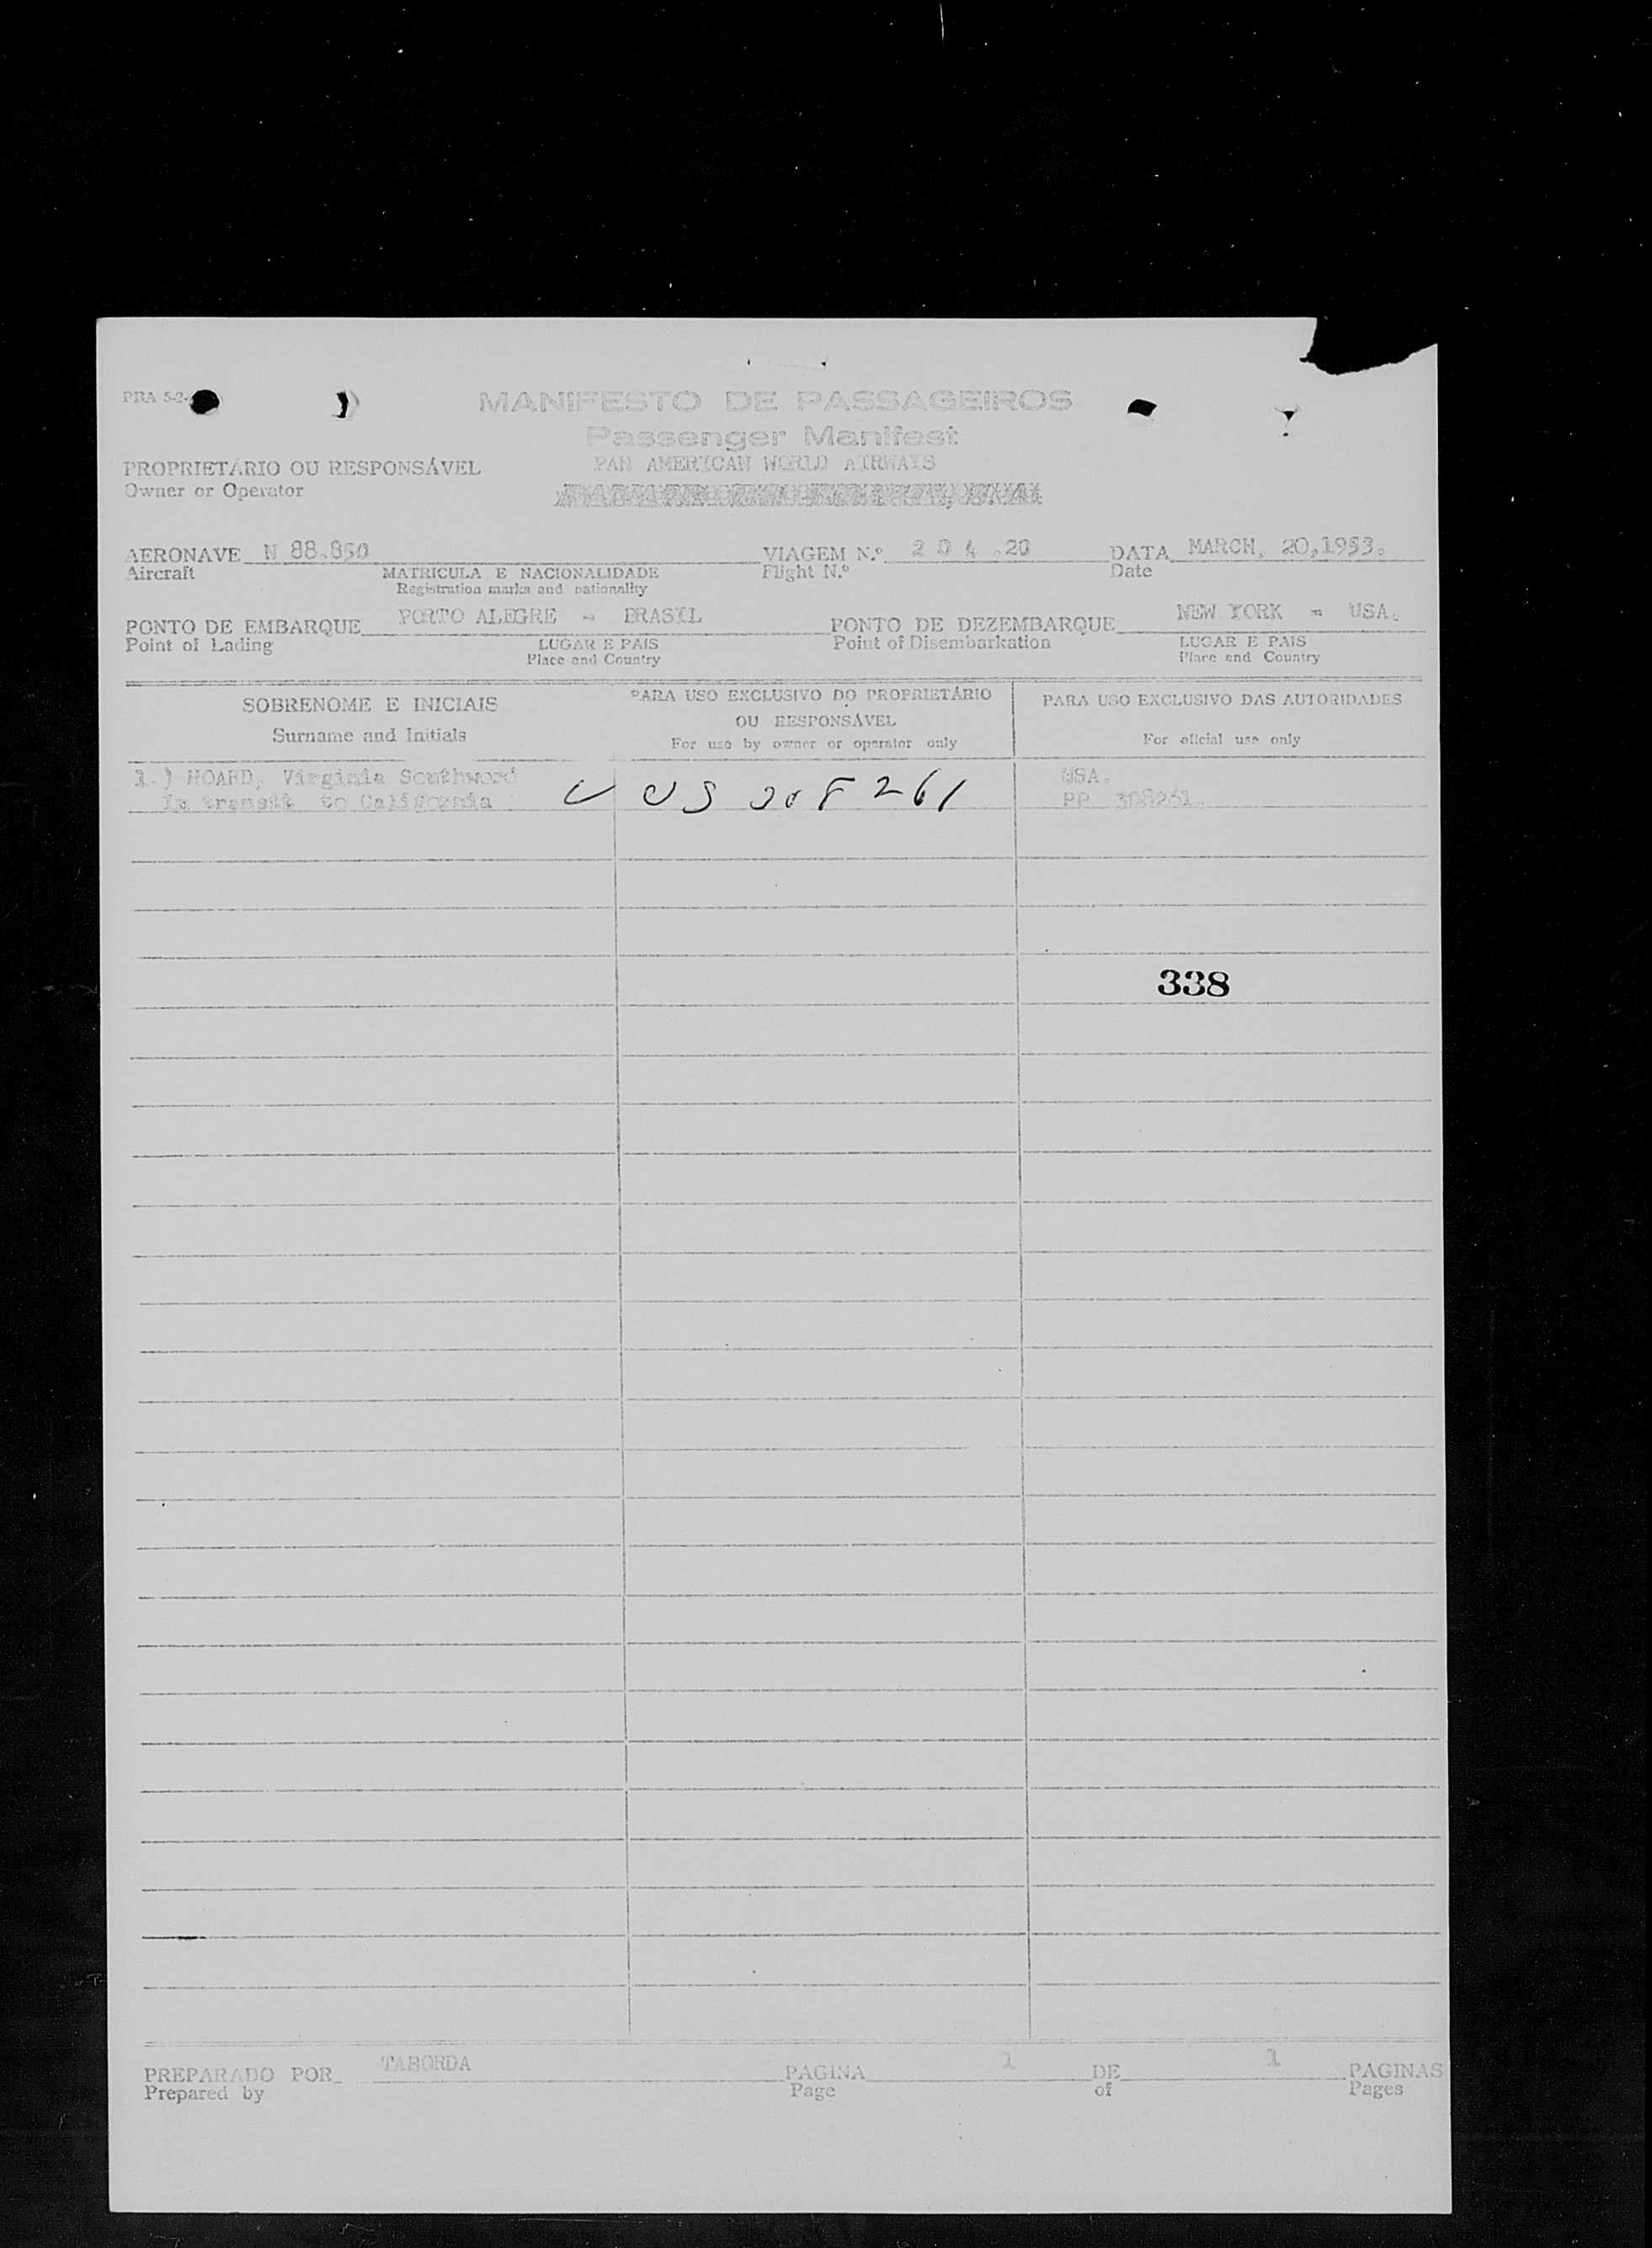 PRA 5-2-
MANIFESTO DE PASSAGEIROS
Passenger Manifest
PROPRIETÁRIO OU RESPONSÁVEL PAN AMERICAN WORLD AIRWAYS
Owner or Operator
AERONAVE N 88.850 VIAGEM N.º 204.20 DATA MARCH, 20,1953.
Aircraft MATRICULA E NACIONALIDADE Flight N.º Date
Registration marks and nationality
PONTO DE EMBARQUE PORTO ALEGRE - BRASIL PONTO DE DEZEMBARQUE NEW YORK - USA.
Point of Lading LUGAR E PAIS Point of Disembarkation LUGAR E PAIS
Place and Country Place and Country
SOBRENOME E INICIAIS PARA USO EXCLUSIVO DO PROPRIETÁRIO PARA USO EXCLUSIVO DAS AUTORIDADES
OU RESPONSÁVEL
Surname and Initials For use by owner or operator only For oficial use only
1.) HOARD, Virginia Southword USA.
In transit to California U US 308261 PP 308261.
338
PREPARADO POR TABORDA PAGINA 1 DE 1 PAGINAS
Prepared by Page of Pages